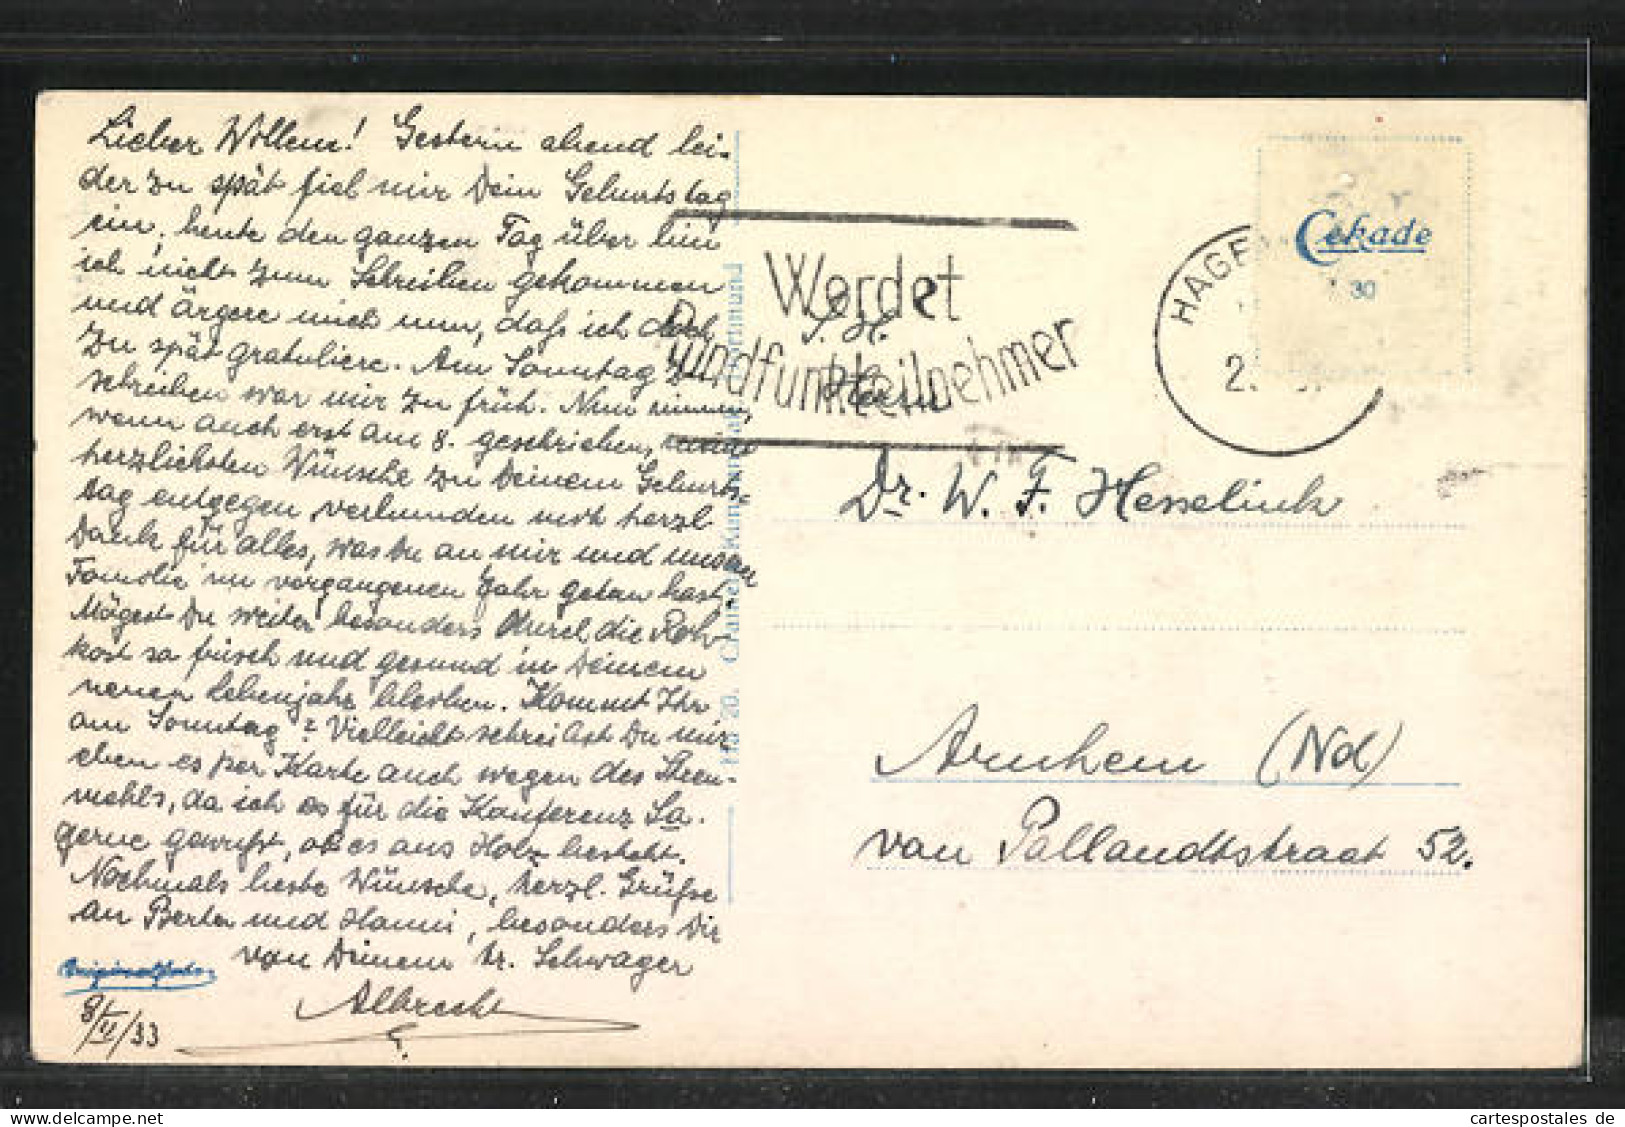 Lieber Willem! Gestern abend lei-
der zu spät fiel mir Dein Geburtstag
ein, heute den ganzen Tag über bin
ich nicht zum Schreiben gekommen
und ärgere mich nun, daß ich doch
zu spät gratuliere. Am Sonntag zu
schreiben war mir zu früh. Nun nimm,
wenn auch erst am 8. geschrieben, meine
herzlichsten Wünsche zu Deinem Geburts-
tag entgegen, verbunden mit herzl.
Dank für alles, was Du an mir und unserer
Familie im vergangenen Jahr getan hast.
Mögest Du weiter besonders durch die Roh-
kost so frisch und gesund in Deinem
neuen Lebensjahr bleiben. Kommt Ihr
am Sonntag? Vielleicht schreibst Du mir
eben es per Karte auch wegen des
da ich es für die Konferenz Sa.
gerne gewußt, ob es aus Holz besteht.
Nochmals beste Wünsche, herzl. Grüße
an Berta und Hanni, besonders Dir
von Deinem tr. Schwager
Albrecht
Originalfoto
8/II/33
Ha 20. Cramers Kunstanstalt Dortmund
Werdet
Rundfunkteilnehmer
HAGE
2.
Cekade
30
S. H.
Herrn
Dr. W. F. Hesselink
Arnhem (Nd)
van Pallandtstraat 52.
cartespostales de